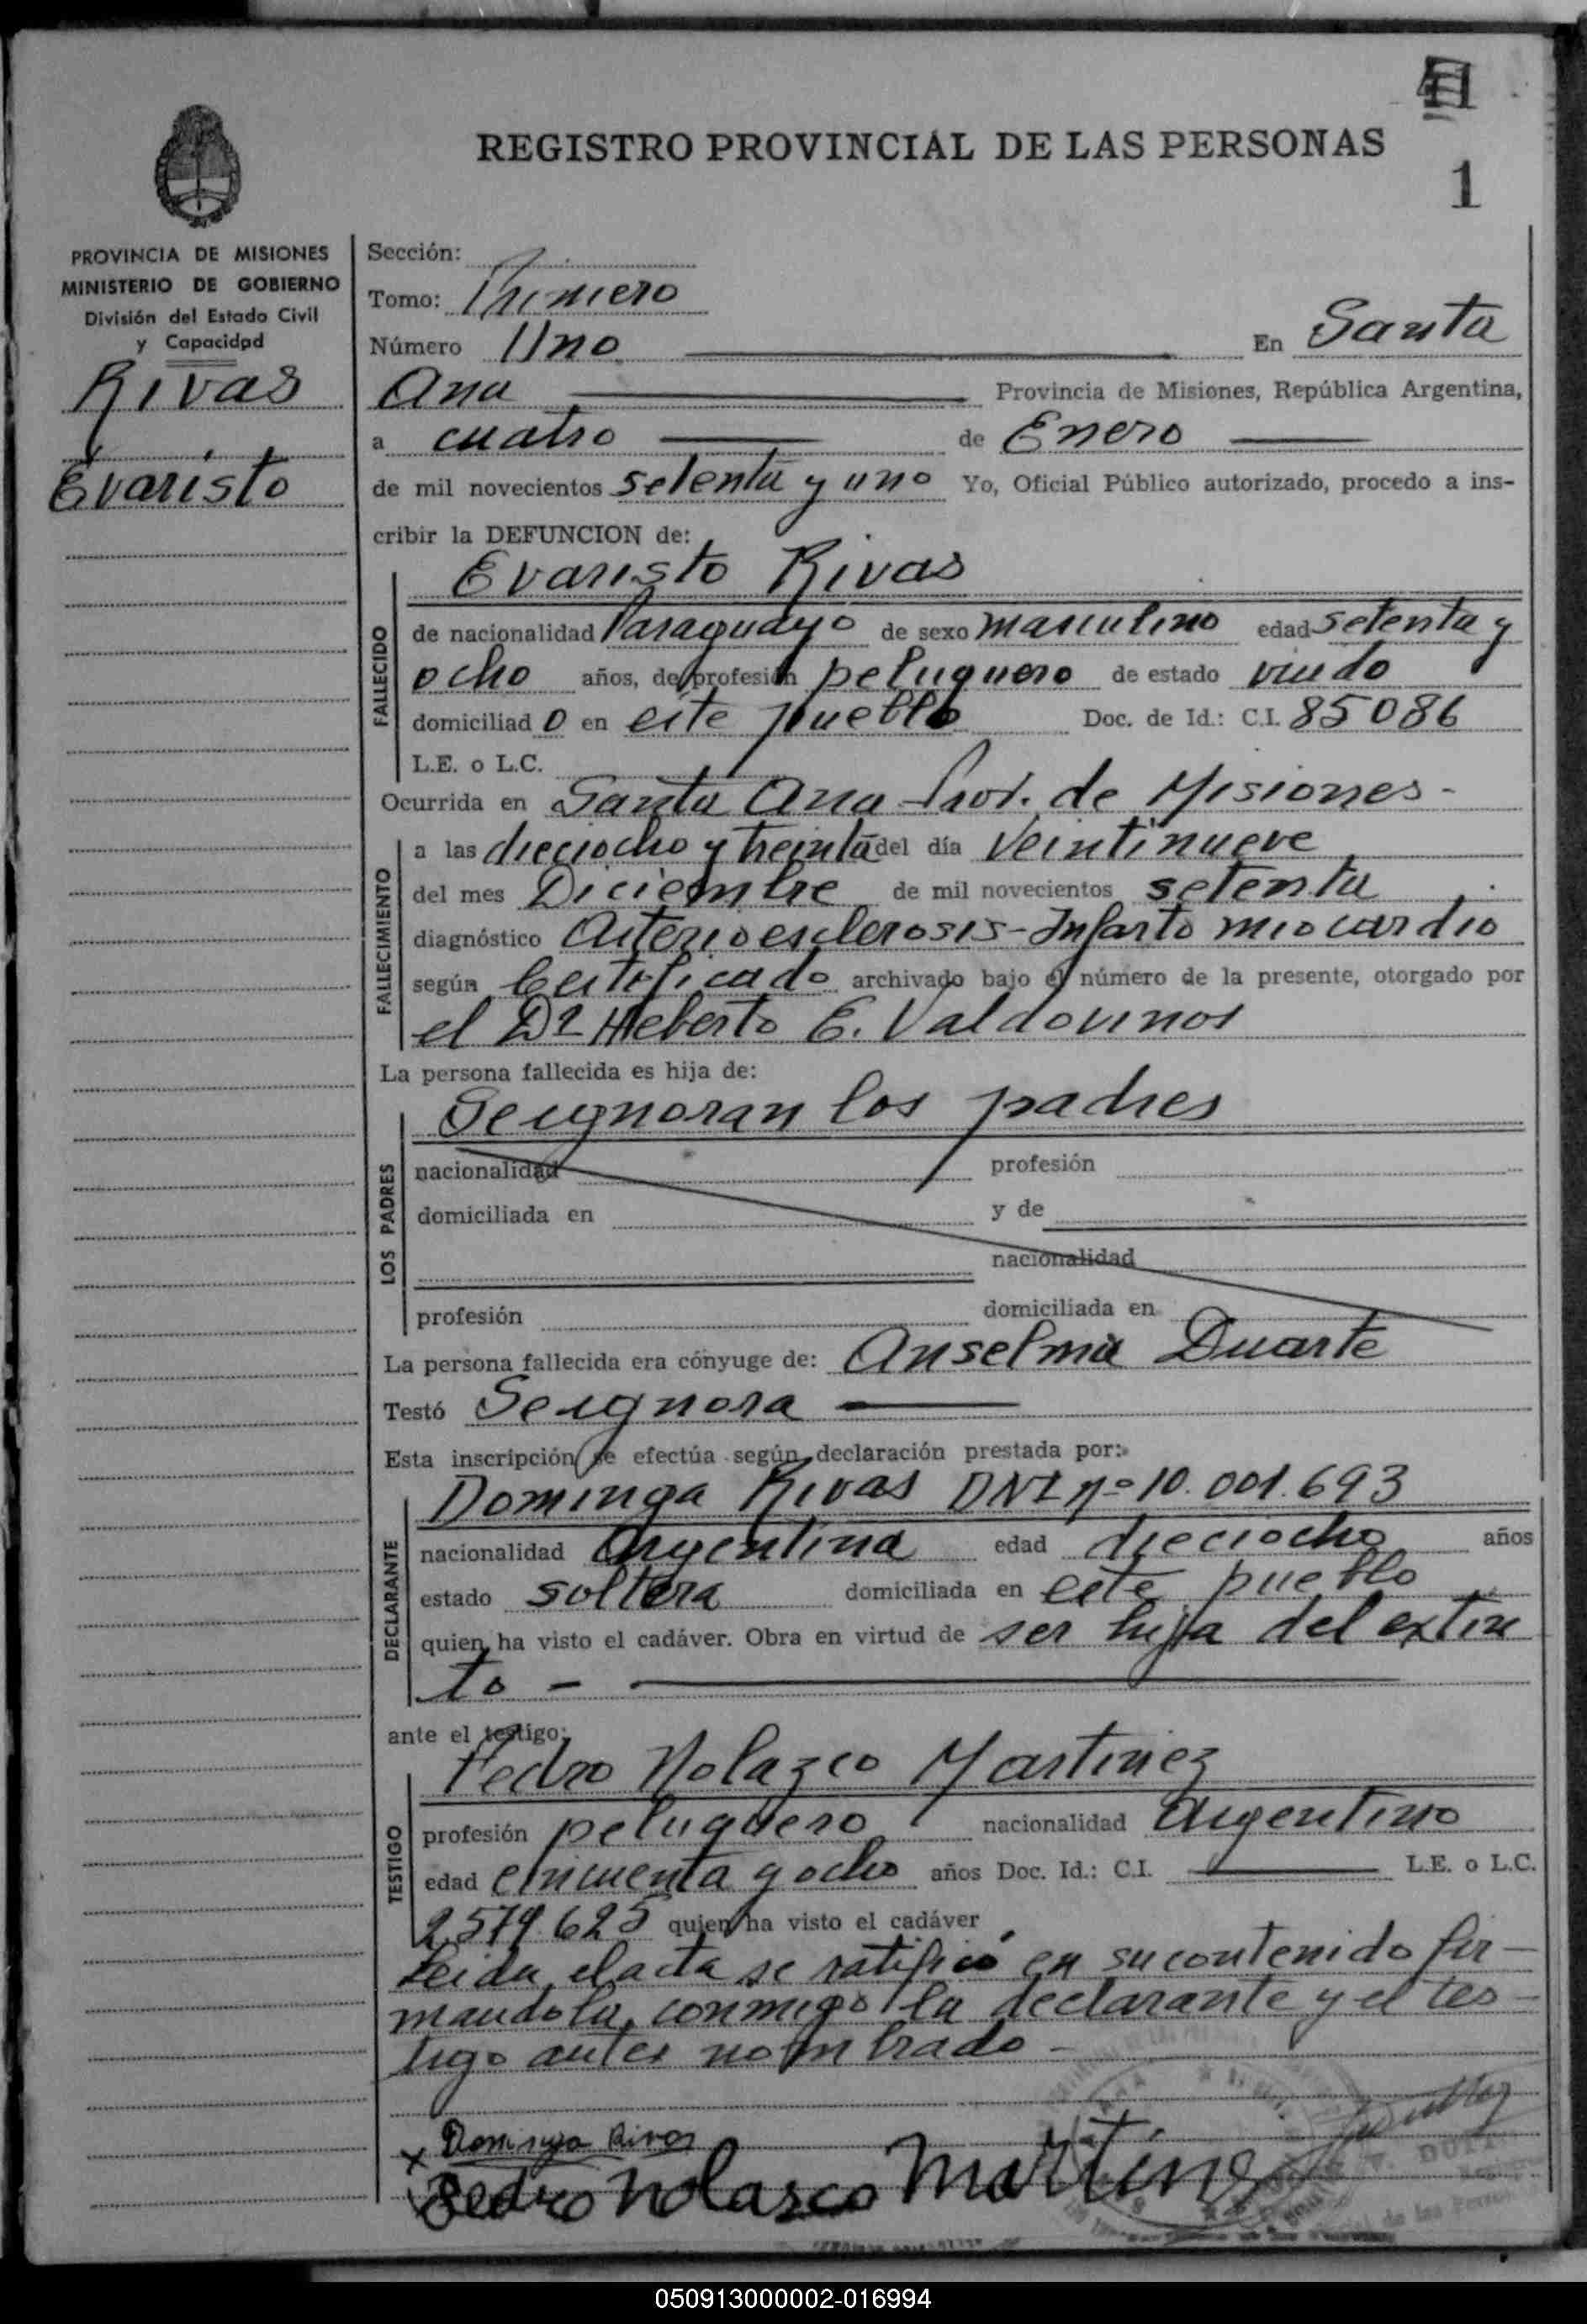 1
REGISTRO PROVINCIAL DE LAS PERSONAS
1
PROVINCIA DE MISIONES
MINISTERIO DE GOBIERNO
División del Estado Civil
y Capacidad
Rivas
Evaristo
Sección:
Tomo: Primero
Número Uno En Santa
Ana Provincia de Misiones, República Argentina,
a cuatro de Enero
de mil novecientos setenta y uno Yo, Oficial Público autorizado, procedo a ins-
cribir la DEFUNCION de:
Evaristo Rivas
FALLECIDO
de nacionalidad Paraguayo de sexo masculino edad setenta y
ocho años, de profesión peluquero de estado viudo
domiciliad o en este pueblo Doc. de Id.: C.I. 85086
L.E. o L.C.
Ocurrida en Santa Ana Prov. de Misiones -
FALLECIMIENTO
a las dieciocho y treinta del día veintinueve
del mes Diciembre de mil novecientos setenta
diagnóstico Arterioesclerosis - Infarto miocardio
según Certificado archivado bajo el número de la presente, otorgado por
el Dr Heberto E. Valdovinos
La persona fallecida es hija de:
Se ignoran los padres
LOS PADRES
nacionalidad profesión
domiciliada en y de
nacionalidad
profesión domiciliada en
La persona fallecida era cónyuge de: Anselma Duarte
Testó Se ignora
Esta inscripción se efectúa según declaración prestada por:
Dominga Rivas DNI nº 10.001.693
DECLARANTE
nacionalidad Argentina edad dieciocho años
estado soltera domiciliada en este pueblo
quien ha visto el cadáver. Obra en virtud de ser hija del extin
to -
ante el testigo:
Pedro Nolazco Martinez
TESTIGO
profesión peluquero nacionalidad Argentino
edad cincuenta y ocho años Doc. Id.: C.I. L.E. o L.C.
2.579.625 quien ha visto el cadáver
Leida el acta se ratificó en su contenido fir-
mandola, conmigo la declarante y el tes-
tigo antes nombrado -
x Dominga Rivas
Pedro Nolasco Martines
050913000002-016994